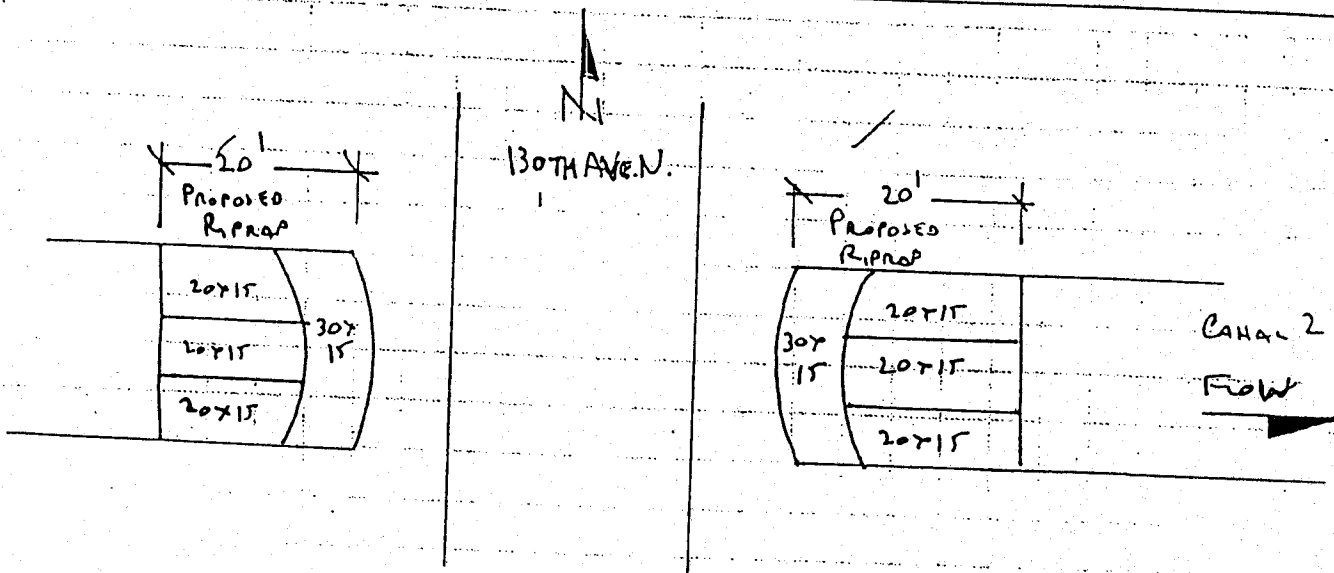 N
130TH AVE.N.
20'
PROPOSED
RIPRAP
20x15
20x15
20x15
30x
15
20'
PROPOSED
RIPRAP
30x
15
20x15
20x15
20x15
CANAL 2
FLOW